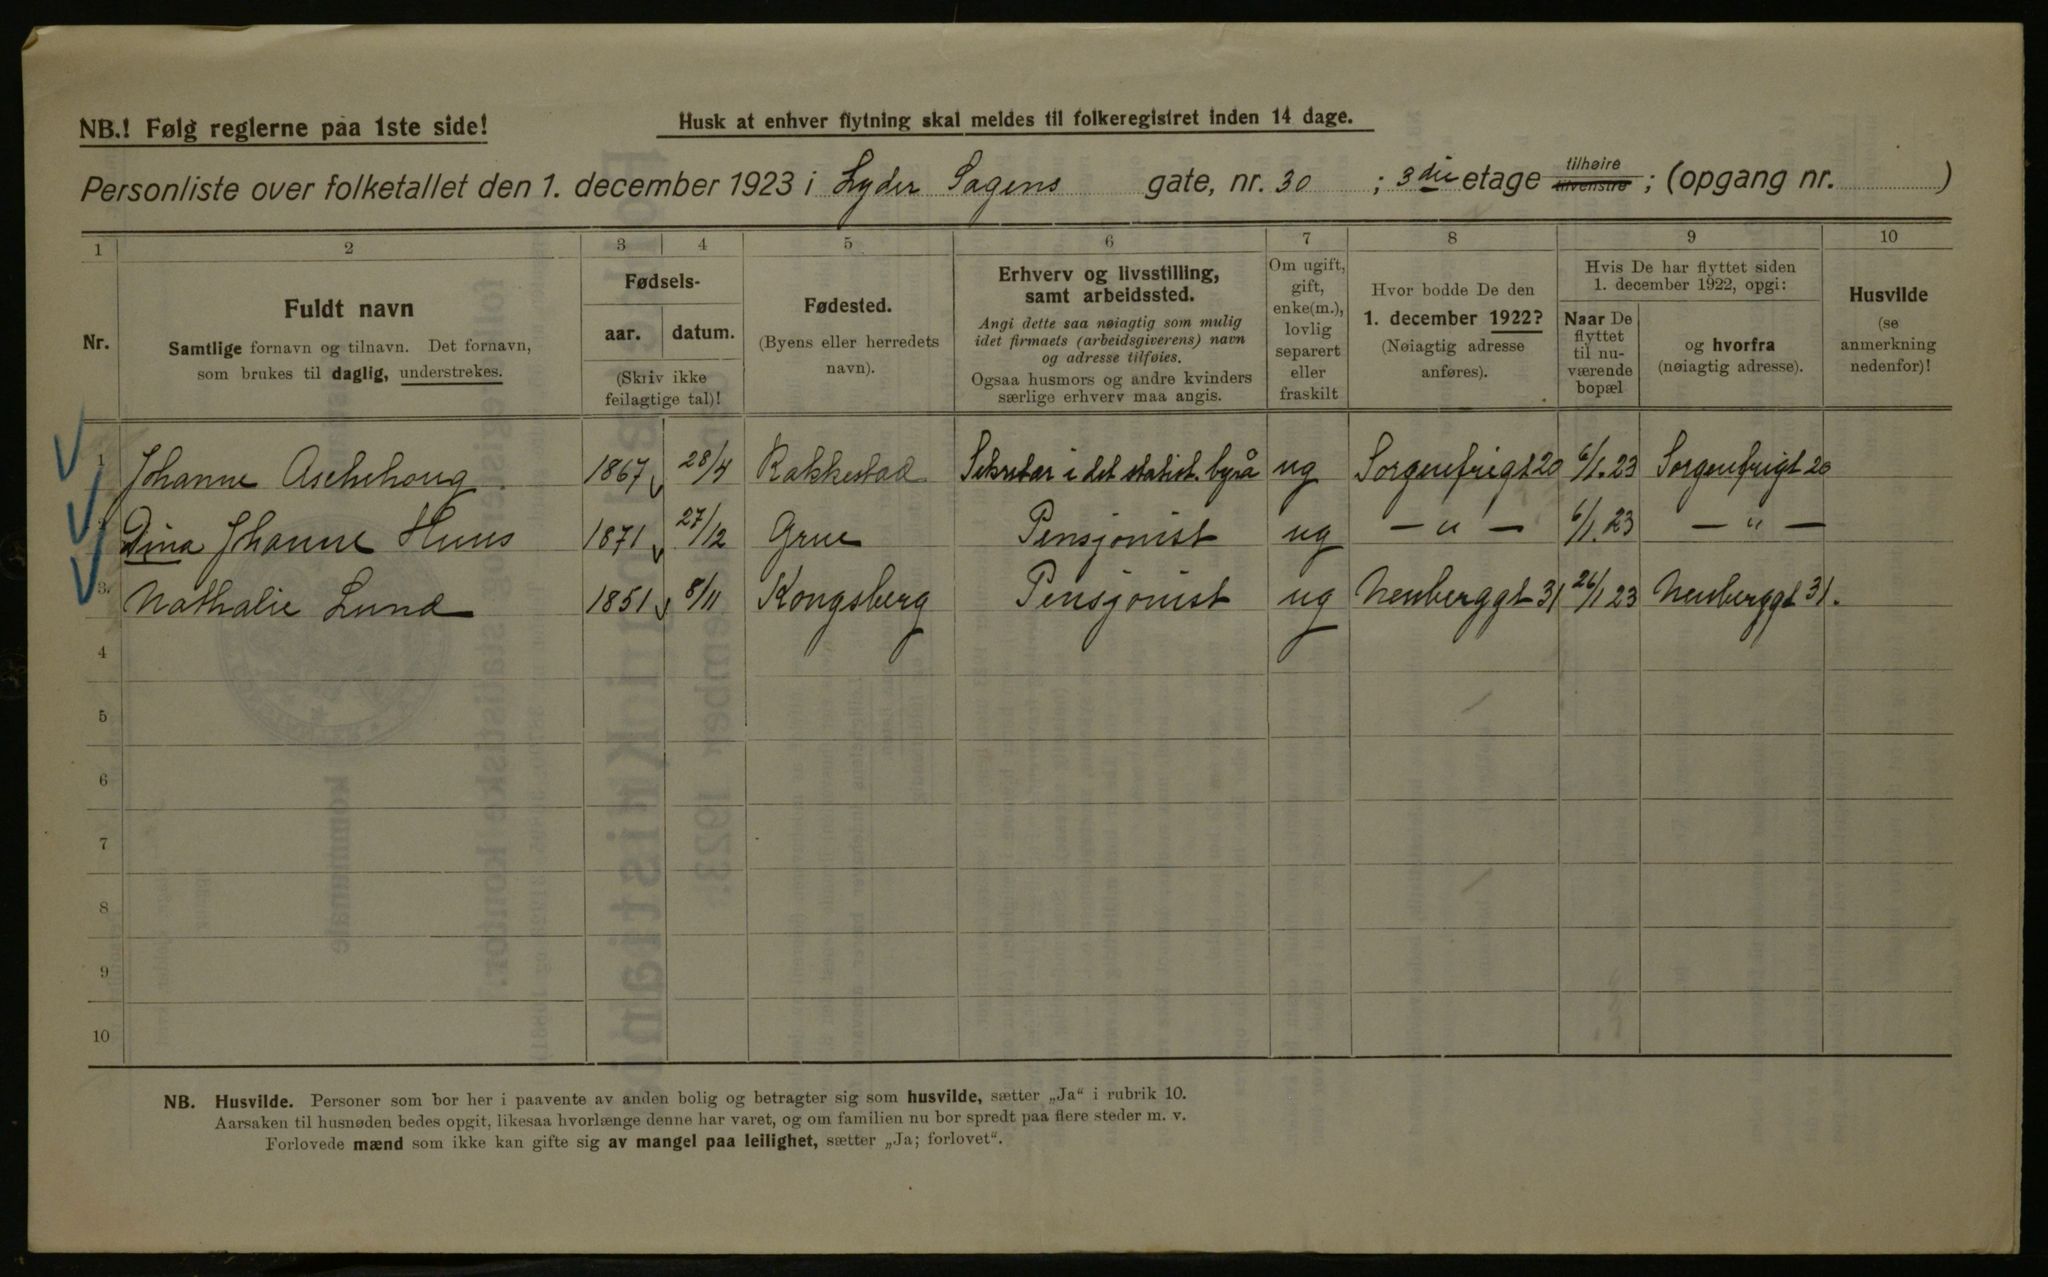 NB.! Følg reglerne paa 1ste side!
Husk at enhver flytning skal meldes til folkeregistret inden 14 dage.
Personliste over folketallet den 1. december 1923 i Lyder Sagens gate, nr. 30 ; 3die etage tilhøire tilvenstre ; (opgang nr. )
1 2 3 4 5 6 7 8 9 10
Nr.
Fuldt navn
Samtlige fornavn og tilnavn. Det fornavn,
som brukes til daglig, understrekes.
Fødsels-
aar. datum.
(Skriv ikke
feilagtige tal)!
Fødested.
(Byens eller herredets
navn).
Erhverv og livsstilling,
samt arbeidssted.
Angi dette saa nøiagtig som mulig
idet firmaets (arbeidsgiverens) navn
og adresse tilføies.
Ogsaa husmors og andre kvinders
særlige erhverv maa angis.
Om ugift,
gift,
enke(m.),
lovlig
separert
eller
fraskilt
Hvor bodde De den
1. december 1922?
(Nøiagtig adresse
anføres).
Hvis De har flyttet siden
1. december 1922, opgi:
Naar De
flyttet
til nu-
værende
bopæl
og hvorfra
(nøiagtig adresse).
Husvilde
(se
anmerkning
nedenfor)!
1 Johanne Aschehoug 1867 28/4 Rakkestad Sekretær i det statist. byrå ug Sorgenfrigt 20 6/1.23 Sorgenfrigt 20
Dina Johanne Huus 1871 27/12 Grue Pensjonist ug — " — 6/1.23 — " —
3. Nathalie Lund 1851 8/11 Kongsberg Pensjonist ug Neuberggt 31 26/1 23 Neuberggt 31.
4
5
6
7
8
9
10
NB. Husvilde. Personer som bor her i paavente av anden bolig og betragter sig som husvilde, sætter „Ja“ i rubrik 10.
Aarsaken til husnøden bedes opgit, likesaa hvorlænge denne har varet, og om familien nu bor spredt paa flere steder m. v.
Forlovede mænd som ikke kan gifte sig av mangel paa leilighet, sætter „Ja; forlovet“.